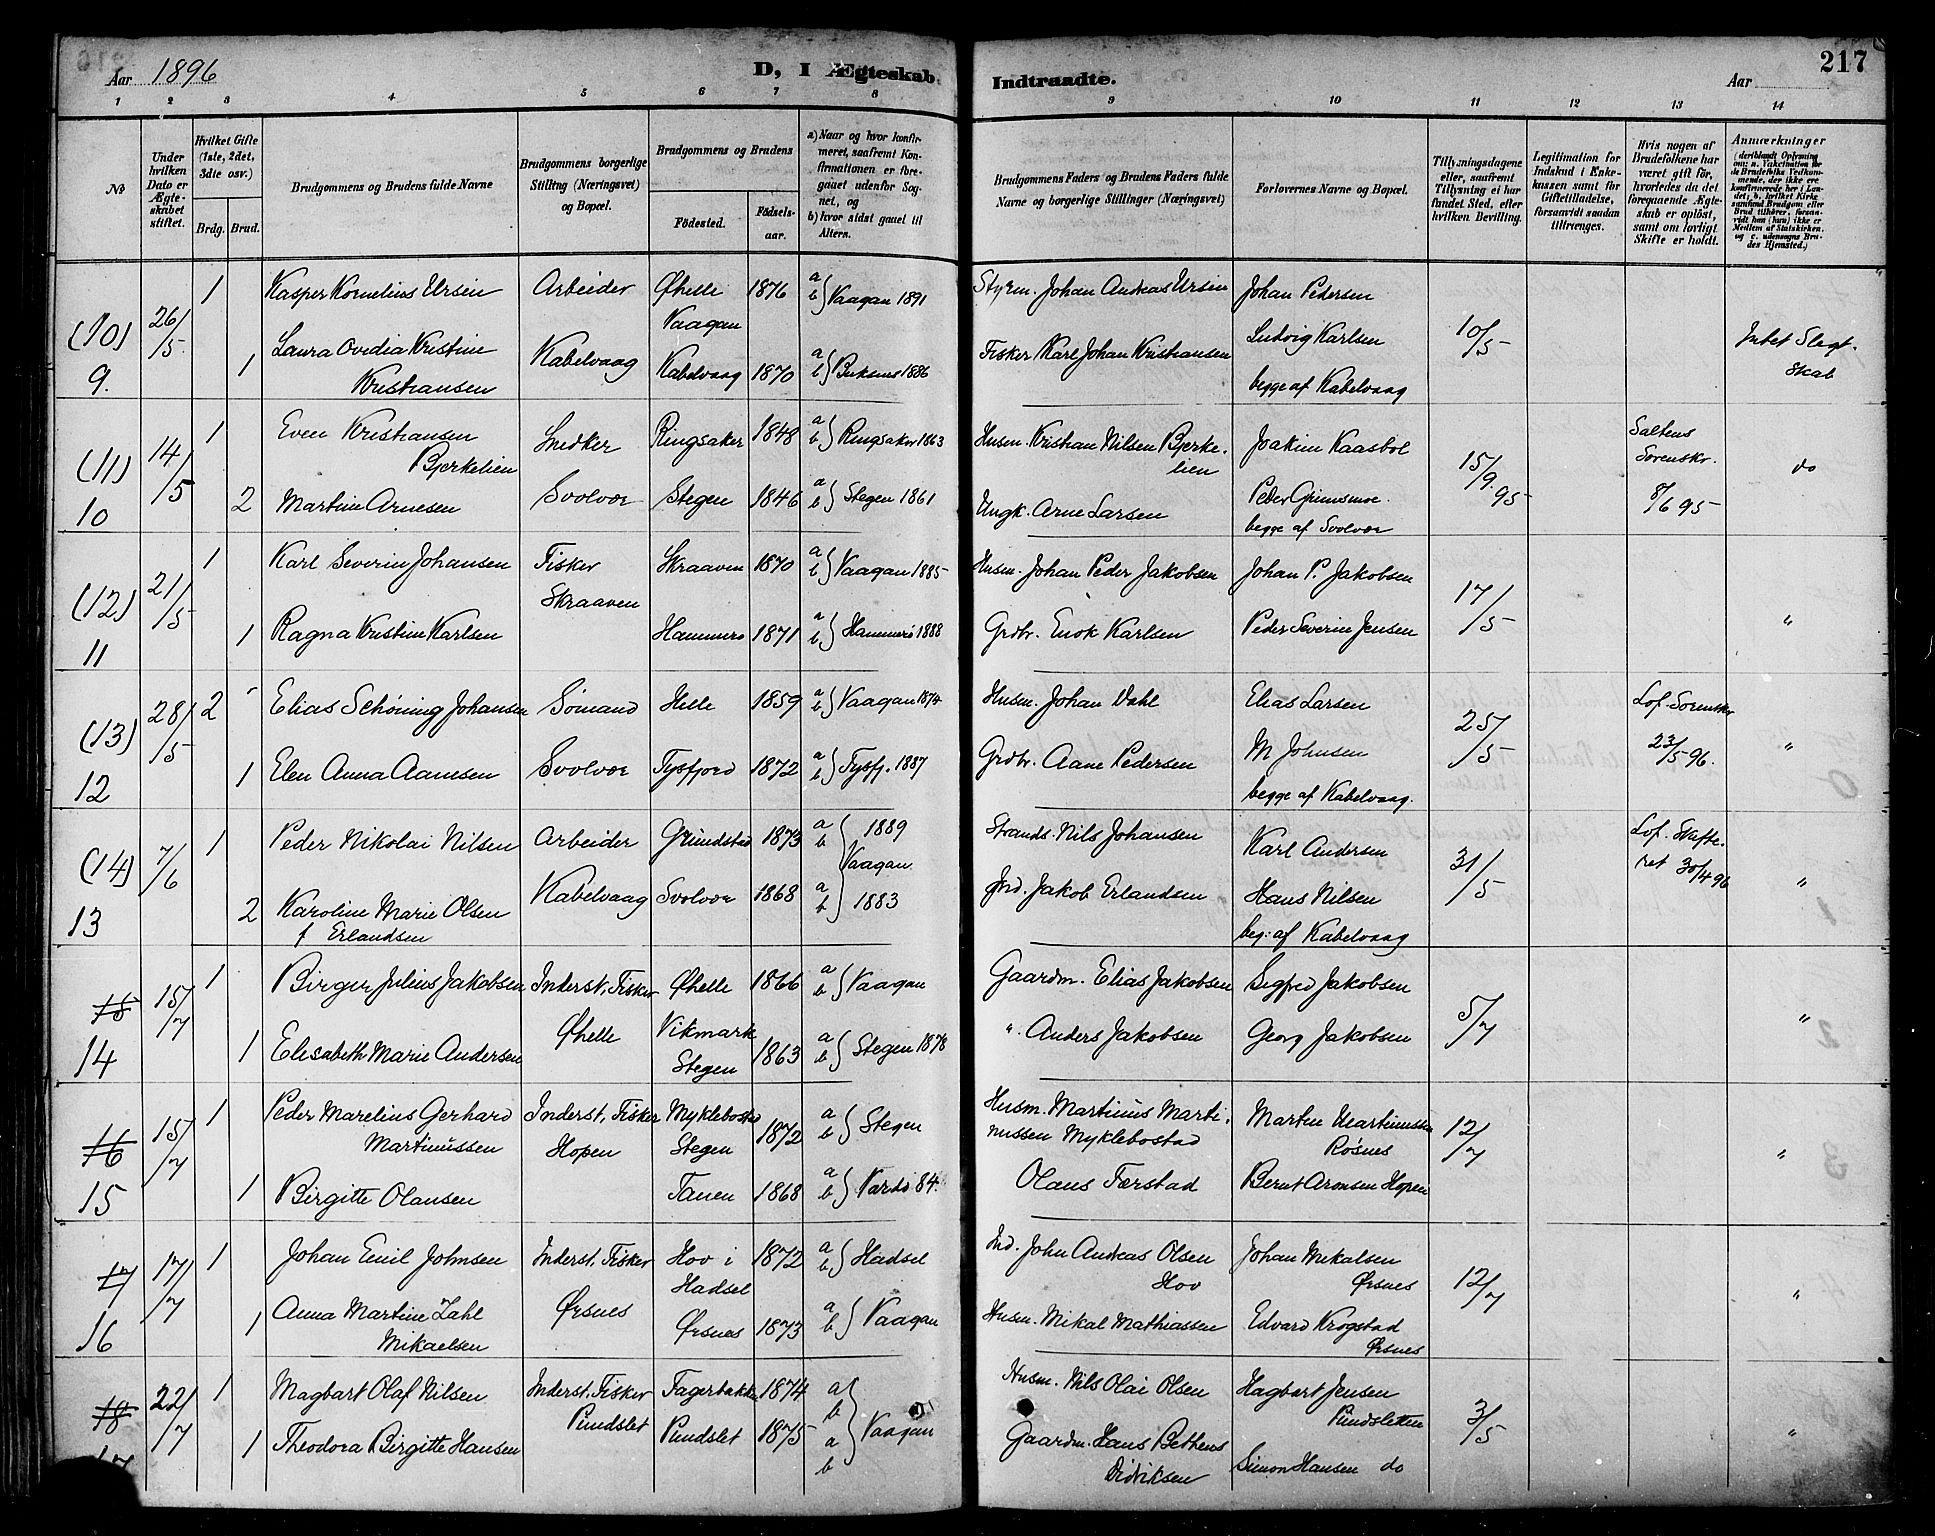 Aar 1896
D, I Ægteskab
Indtraadte.
Aar
217
1 2 3 4 5 6 7 8 9 10 11 12 13 14
No
Under hvilken Dato er Ægteskabet stiftet.
Hvilket Gifte (1ste, 2det, 3die osv.)
Brdg. Brud.
Brudgommens og Brudens fulde Navne
Brudgommens borgerlige Stilling (Næringsvei) og Bopæl.
Brudgommens og Brudens
Fødested.
Fødselsaar.
a) Naar og hvor konfirmeret, saafremt Konfirmationen er foregaaet udenfor Sognet, og
b) hvor sidst gaaet til Alters.
Brudgommens Faders og Brudens Faders fulde Navne og borgerlige Stillinger (Næringsvei)
Forlovernes Navne og Bopæl.
Tillysningsdagene eller, saafremt Tillysning ei har fundet Sted, efter hvilken Bevilling.
Legitimation for Indskud i Enkekassen samt for Giftetilladelse, forsaavidt saadan tiltrænges.
Hvis nogen af Brudefolkene har været gift før, hvorledes da det foregaaende Ægteskab er opløst, samt om lovligt Skifte er holdt.
Anmærkninger
(10) 26/5 1 Kasper Kornelius Ursin Arbeider Øhelle 1876 a b } Vaagan 1891 Styrm. Johan Andreas Ursin Johan Pedersen
Vaagan
9. 1 Laura Ovedia Kristine Kabelvaag Kabelvaag 1870 a b } Buksnes 1886 Fisker Karl Johan Kristiansen Ludvig Karlsen 10/5 Intet Slegt-
Kristiansen begge af Kabelvaag skab
(11) 14/5 1 Even Kristiansen Snedker Ringsaker 1848 a b } Ringsaker 1863 Husm. Kristian Nilsen Bjerke- Joakim Kaasbøl 15/9 95 Saltens
Bjerkelien lien Sorenskr. do
10 2 Martine Arnesen Svolvær Stegen 1846 a b } Stegen 1861 Ungk. Arne Larsen Peder Grimsmoe 8/6 95
begge af Svolvær
(12) 21/5 1 Karl Severin Johansen Fisker Skraaven 1870 a b } Vaagan 1885 Husm. Johan Peder Jakobsen Johan P. Jakobsen 17/5
Skraaven
11 1 Ragna Kristine Karlsen Hammerø 1871 a b } Hammerø 1888 Grdbr. Enok Karlsen Peder Severin Jensen "
(13) 28/5 2 Elias Schøning Johansen Sømand Helle 1859 a b } Vaagan 1874 Husm. Johan Dahl Elias Larsen 25/5 Lof. Sorenskr
12 1 Elen Anna Aanesen Svolvær Tysfjord 1872 a b } Tysfj. 1887 Grdbr. Aane Pedersen M Johnsen 23/5 96. "
begge af Kabelvaag.
(14) 7/6 1 Peder Nikolai Nilsen Arbeider Grundstad 1873 a b } 1889 Strands. Nils Johansen Karl Andersen 31/5 Lof. Skifte-
Vaagan ret 30/4 96
13 2 Karoline Marie Olsen Kabelvaag Svolvær 1868 a b } 1883 Ind. Jakob Erlandsen Hans Nilsen "
f Erlandsen beg: af Kabelvaag
15 15/7 1 Birger Julius Jakobsen Inderst, Fisker Øhelle 1866 a b } Vaagan Gaardm. Elias Jakobsen Sigfred Jakobsen 5/7
14 1 Elisabeth Marie Andersen Øhelle Vikmark 1863 a b } Stegen 1878 ". Anders Jakobsen Georg Jakobsen "
Stegen
16 15/7 1 Peder Marelius Gerhard Inderst, Fisker Myklebostad 1872 a b } Stegen Husm. Martinus Marti- Martin Martinussen 12/7
Martinussen Hopen Stegen nussen Myklebostad Røsnes "
15 1 Birgitte Olausen Tanen 1868 a b } Vardø 84. Olaus Færstad Bernt Aronsen Hopen
17 17/7 1 Johan Emil Johnsen Inderst, Fisker Hov i 1872 a b } Hadsel Ind. John Andreas Olsen Johan Mikalsen 12/7
Hadsel Hov Ørsnes
16 1 Anna Martine Zahl Ørsnes Ørsnes 1873 a b } Vaagan Husm. Mikal Mathiassen Edvard Krogstad "
Mikaelsen Ørsnes
18 22/7 1 Magbart Olaf Nilsen Inderst, Fisker Fagerbakke 1874 a b Husm. Nils Olai Olsen Hagbart Jensen 3/5
Pundslet Pundsletten
17 1 Theodora Birgitte Hansen Pundslet 1875 a b } Vaagan Gaardm. Hans Bethens Simon Hansen do "
Didriksen